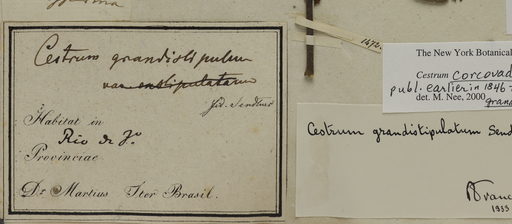 Cestrum grandistipulum
var. exstipulatum
fid. Sendtner
Habitat in
Rio de Jo
Provinciae
Dr. Martius Iter Brasil.
1472
The New York Botanical
Cestrum corcovad
publ. earlier in 1846
det. M. Nee, 2000
grand
Cestrum grandistipulatum Send
Franc
1955